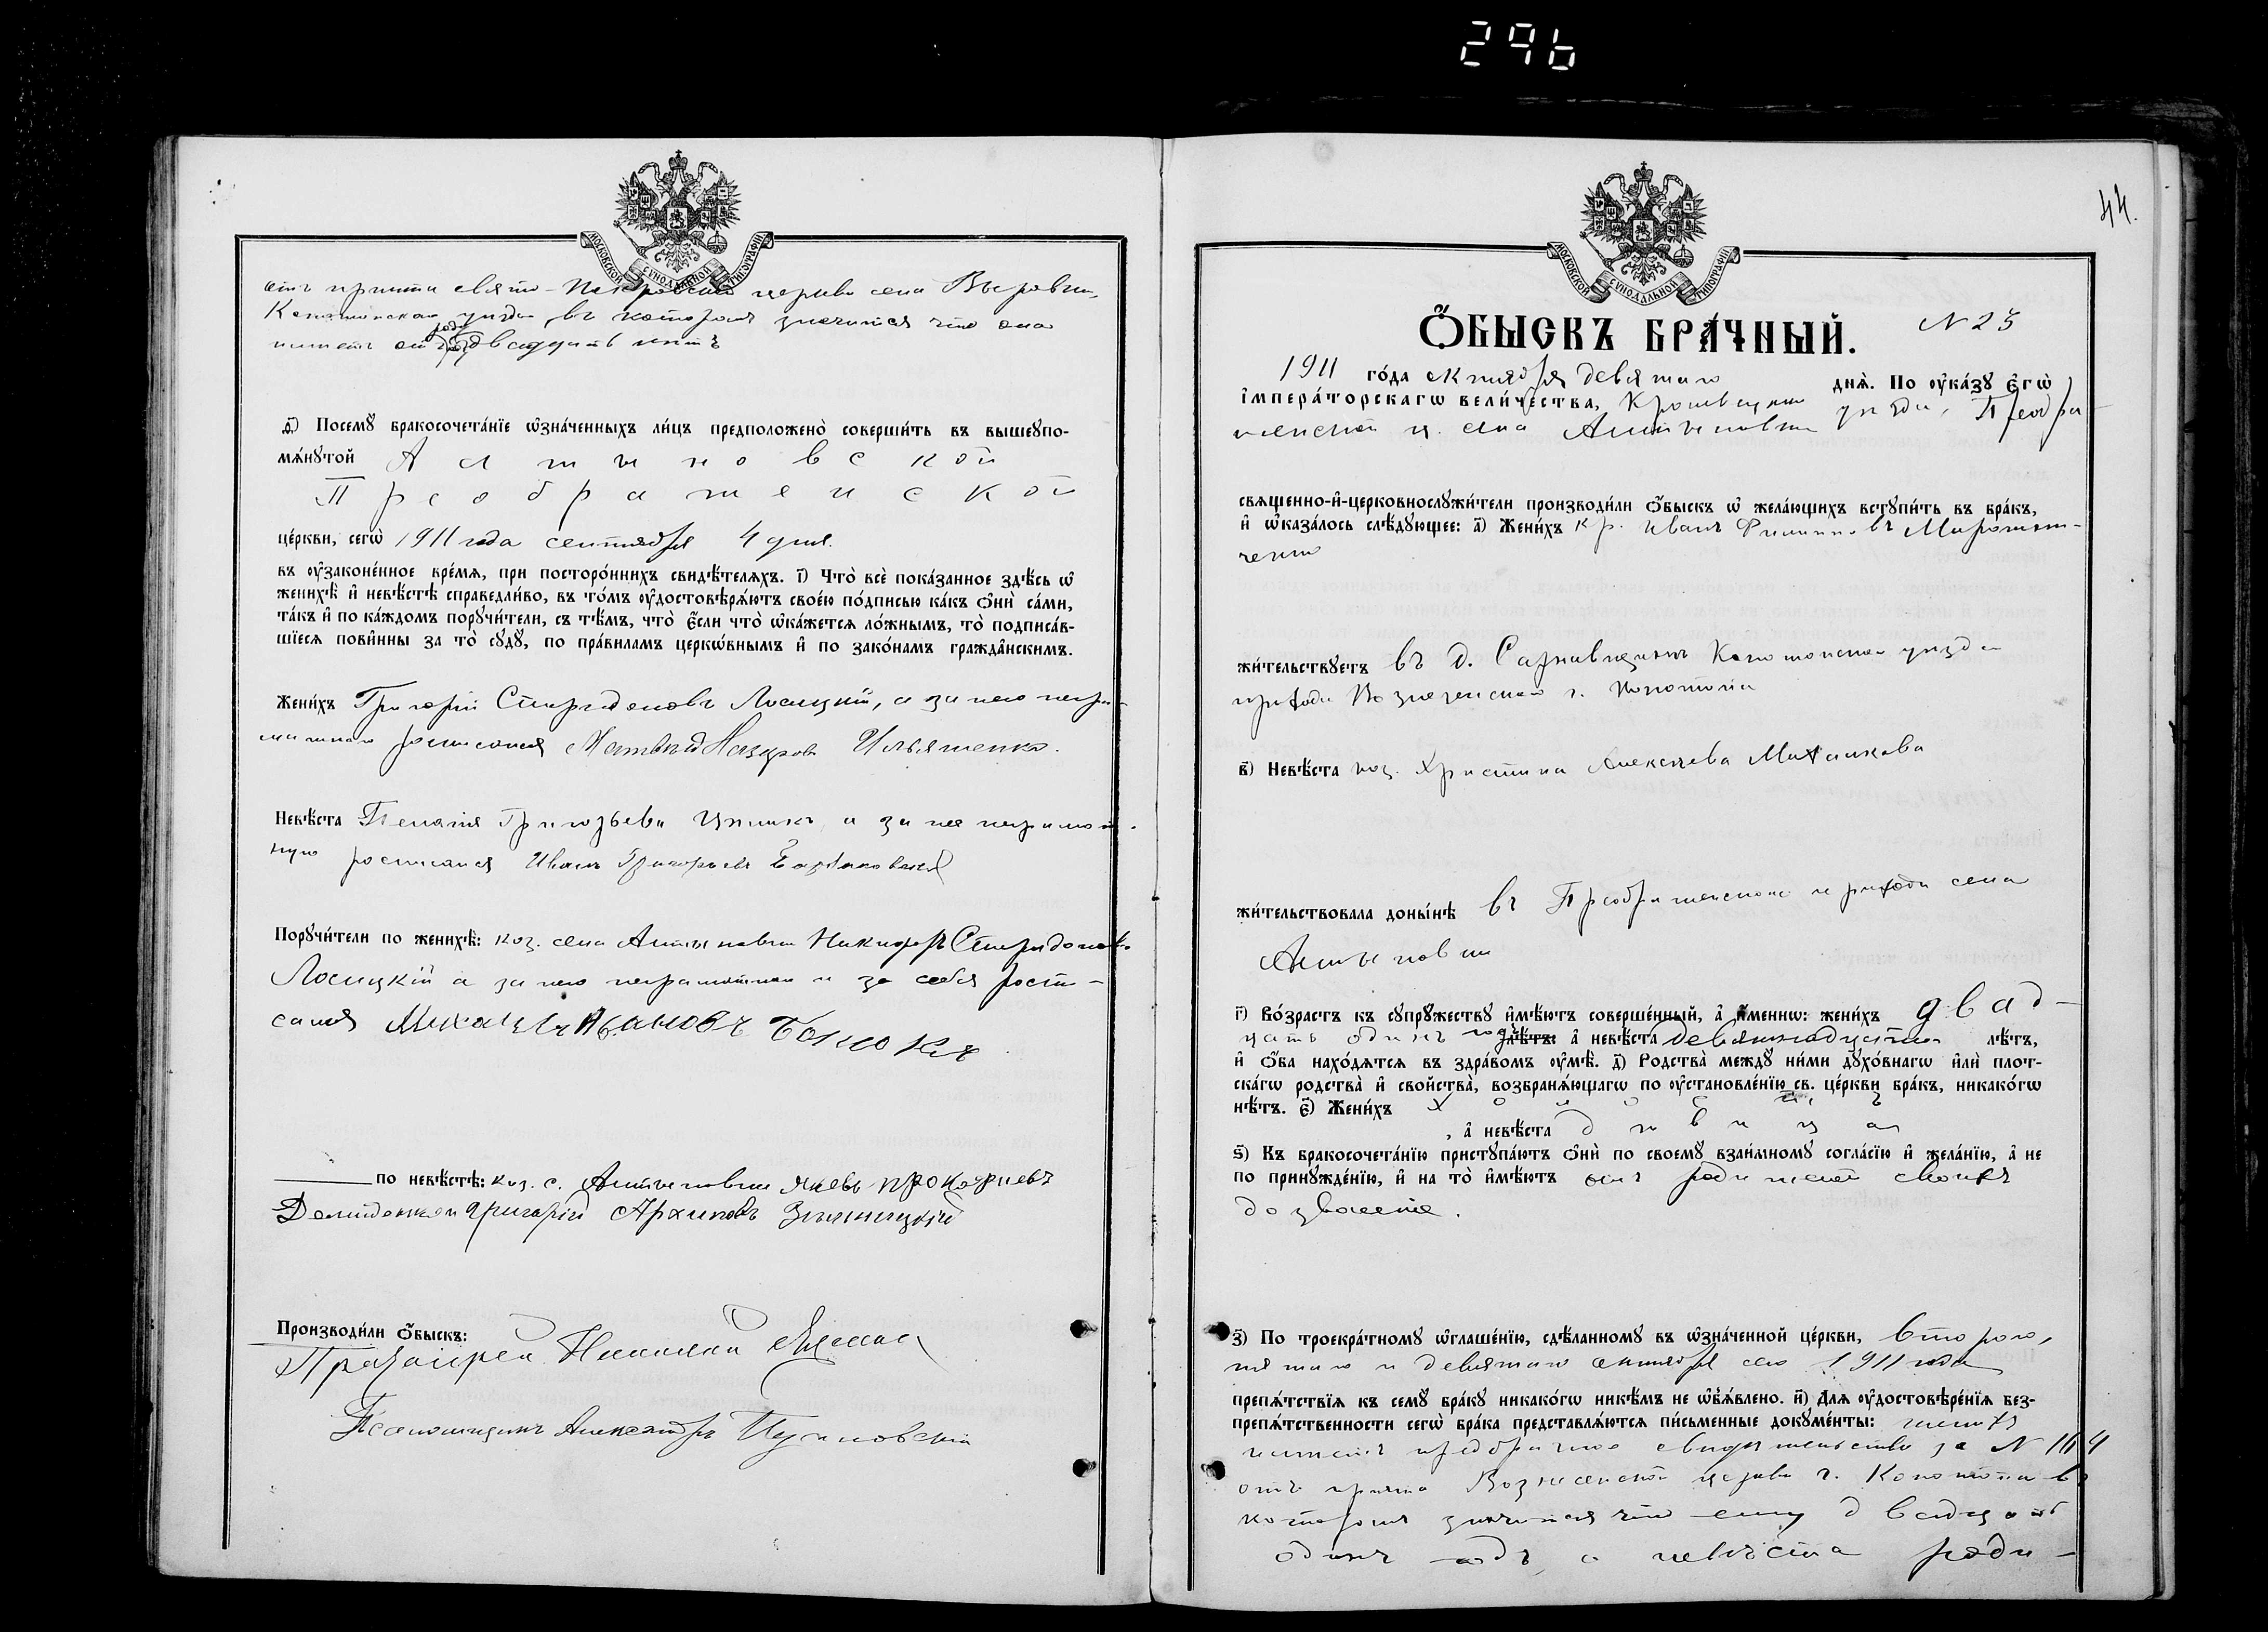 296
МОСКОВСКОЙ СѴНОДАЛЬНОЙ ТИПОГРАФІИ
отъ причта свято-Покровской церкви села Выровки,
Конотопскаго уѣзда, въ которомъ значится что она
имѣетъ отъ роду двадцать лѣтъ
ѳ҃) Посемꙋ̀ бракосочета́нїе ѡ҆зна́ченныхъ ли́цъ предположенѡ̀ соверши́ть въ вышеꙋпо-
мѧ́нꙋтой Алтыновской
Преображенской
це́ркви, сегѡ̀ 1911 года сентября 4 дня.
въ ᲂу҆зако́не́нное вре́мѧ, при посторо́ннихъ свидѣ́телѧхъ. і҃) Что̀ всѐ пока́занное здѣ́сь ѡ҆
женихѣ̀ и҆ невѣ́стѣ справедли́во, въ то́мъ ᲂу҆достовѣрѧ́ютъ свое́ю по́дписью ка́къ ѻ҆нѝ са́ми,
та́къ и҆ по ка́ждомъ порꙋчи́тели, съ тѣ́мъ, что̀ є҆́сли что̀ ѡ҆ка́жетсѧ ло́жнымъ, то̀ подписа́в-
шїесѧ пови́нны за то̀ сꙋдꙋ̀, по пра́виламъ церкѡ́внымъ и҆ по зако́намъ гражда̑нскимъ.
Жени́хъ Григорій Спиридоновъ Лосицкій, а за него негра-
мотнаго росписался Матвѣй Назаровъ Ильяшенко.
Невѣ́ста Пелагія Григорьева, а за нее неграмот-
ную росписался Иванъ Григорьевъ
Порꙋчи́тели по женихѣ̀: коз. села Алтыновки Никифоръ Спиридоновъ
Лосицкій а за него неграмотнаго и за себя роспи-
сался Михаилъ Ивановъ
по невѣ́стѣ: коз. с. Алтыновки Яковъ Прокофіевъ
Григорій Архиповъ
Производи́ли ѻ҆́быскъ:
Протоіерей Николай
Псаломщикъ Александръ
44.
МОСКОВСКОЙ СѴНОДАЛЬНОЙ ТИПОГРАФІИ
Ѻ҆́БЫСКЪ БРА́ЧНЫЙ. N 25
1911 го́да октября девятаго днѧ̀. По ᲂу҆ка́зꙋ Є҆гѡ̀
і҆мпера́торскагѡ вели́чества, Кролевецкаго уѣзда, Преобра-
женской ц. села Алтыновки
свѧще́нно-и҆-церковнослꙋжи́тели производи́ли ѻ҆́быскъ ѡ҆ жела́ющихъ встꙋпи́ть въ бра́къ,
и҆ ѡ҆каза́лось слѣ́дꙋющее: а҃) Жени́хъ кр. Иванъ Филипповъ Мирошни-
ченко
жи́тельствꙋетъ въ д. Конотопскаго уѣзда
прихода Вознесенской г. Конотопа
в҃) Невѣ́ста коз. Христина Алексѣева Михалкова
жи́тельствовала доны́нѣ въ Преображенскомъ приходѣ села
Алтыновки
г҃) Во́зрастъ къ сꙋпрꙋ́жествꙋ и҆мѣ́ютъ соверше́нный, а҆ и҆́меннѡ: жени́хъ двад-
цать одинъ годъ лѣ́тъ: а҆ невѣ́ста девятнадцать лѣ́тъ,
и҆ ѻ҆́ба нахо́дѧтсѧ въ здра́вомъ ᲂу҆мѣ̀. д҃) Родства̀ междꙋ̀ ни́ми дꙋхо́внагѡ и҆лѝ плот-
ска́гѡ родства̀ и҆ сво́йства̀, возбранѧ́ющагѡ по ᲂу҆становле́нїю св. це́ркви бра́къ, никако́гѡ
нѣ́тъ. є҃) Жени́хъ холостъ,
, а҆ невѣ́ста дѣвица
ѕ҃) Къ бракосочета́нїю пристꙋпа́ютъ ѻ҆нѝ по своемꙋ̀ взаи́мномꙋ согла́сїю и҆ жела́нїю, а҆ не
по принꙋжде́нїю, и҆ на то̀ и҆мѣ́ютъ отъ родителей своихъ
дозволеніе.
з҃) По троекра́тномꙋ ѡ҆глаше́нїю, сдѣ́ланномꙋ въ ѡ҆зна́ченной це́ркви, второго,
пятаго и девятаго октября сего 1911 года
препѧ́тствїѧ къ семꙋ̀ бра́кꙋ никако́гѡ никѣ́мъ не ѡ҆б̾ѧ́влено. и҃) Длѧ ᲂу҆достовѣре́нїѧ без-
препѧ́тственности сегѡ̀ бра́ка представлѧ́ютсѧ пи́сьменные докꙋме́нты: женихъ
имѣетъ предбрачное свидѣтельство за N 1164
отъ причта Вознесенской церкви г. Конотопа въ
которомъ значится что ему двадцать
одинъ годъ, а невѣста роди-